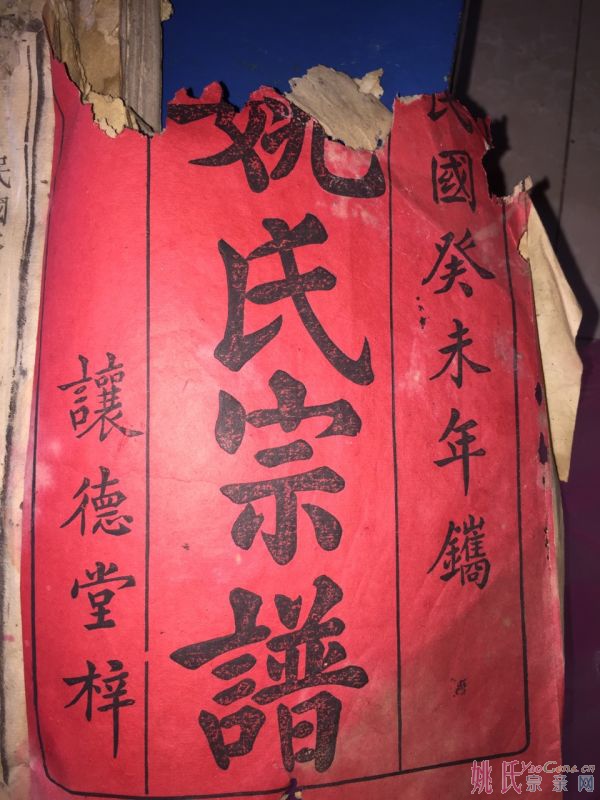 民國癸未年鐫
姚氏宗譜
讓德堂梓
民國
姚氏 YaoGens.cn
宗亲网